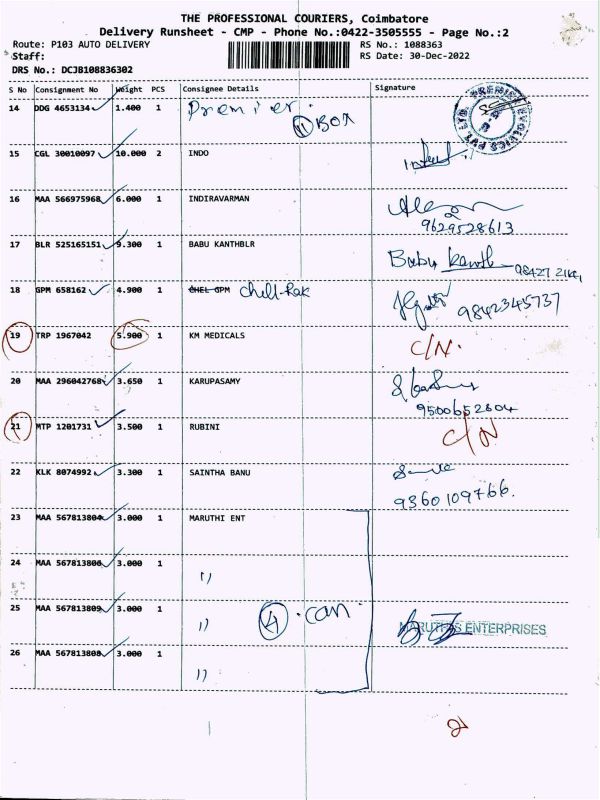 THE PROFESSIONAL COURIERS, Coimbatore
Delivery Runsheet - CMP - Phone No.:0422-3505555 - Page No.:2
Route: P103 AUTO DELIVERY
RS No.: 1088363
Staff:
RS Date: 30-Dec-2022
DRS No.: DCJB108836302
S No Consignment No Weight PCS Consignee Details Signature
14 DDG 4653134 1.400 1 Premier
11 Box
15 CGL 30010097 10.000 2 INDO
16 MAA 566975968 6.000 1 INDIRAVARMAN
9629528613
17 BLR 525165151 9.300 1 BABU KANTHBLR Babu Kanth
18 GPM 658162 4.900 1 CHEL GPM
9842345737
19 TRP 1967042 5.900 1 KM MEDICALS C/N.
20 MAA 296042768 3.650 1 KARUPASAMY
9500652604
21 MTP 1201731 3.500 1 RUBINI C/N
22 KLK 8074992 3.300 1 SAINTHA BANU
9360109766.
23 MAA 567813804 3.000 1 MARUTHI ENT
24 MAA 567813806 3.000 1 ''
25 MAA 567813809 3.000 1 '' 4 can MARUTHIS ENTERPRISES
26 MAA 567813808 3.000 1 ''
2